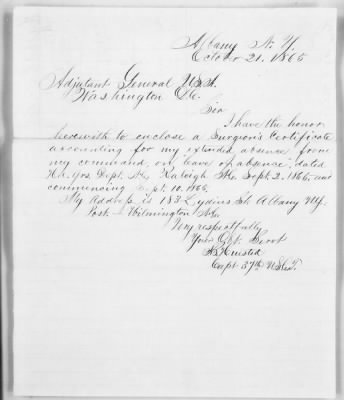 Albany N.Y.
October 21. 1865
Adjutant General USA.
Washington DC.
Sir
I have the honor
herewith to enclose a Surgeon's Certificate
accounting for my extended absence from
my command, on "leave of absence", dated
Hd. Qrs. Dept. NC, Raleigh NC. Sept. 2. 1865, and
commencing Sept. 10. 1865.
My Address is 183 Lydius St. Albany NY.
Post - Wilmington NC.
Very respectfully
Your Obt. Servt
Capt 37th U.S.C.T.